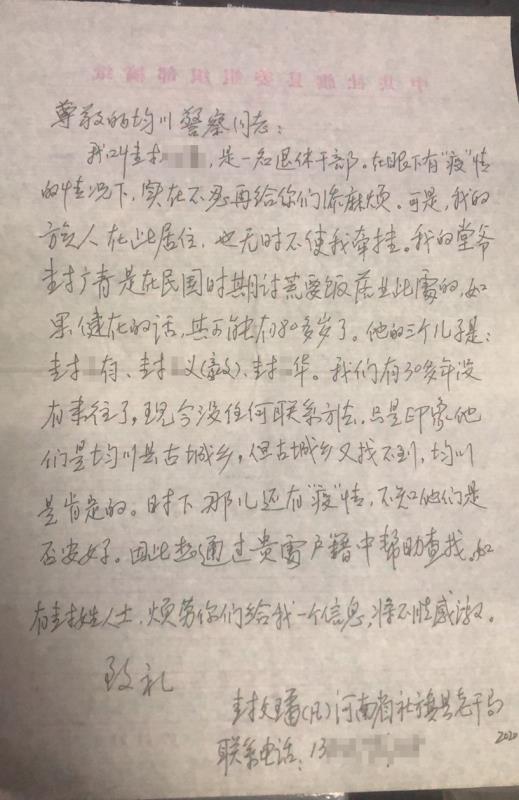 尊敬的均川警察同志：
我叫封，是一名退休干部。在眼下有“疫”情
的情况下，实在不忍再给你们添麻烦。可是，我的
族人在此居住，也无时不使我牵挂。我的堂爷
封广青是在民国时期讨荒要饭落户此处的，如
果健在的话，其可能有80多岁了。他的三个儿子是：
封有、封义(毅)、封华。我们有30多年没
有来往了，现今没任何联系方法，只是印象他
们是均川县古城乡，但古城乡又找不到，均川
是肯定的。时下那儿还有“疫”情，不知他们是
否安好。因此想通过贵处户籍中帮助查找。如
有封姓人士，烦劳你们给我一个信息，将不胜感激。
致礼
封文(凡)河南省社旗县老干局
联系电话：13
2020